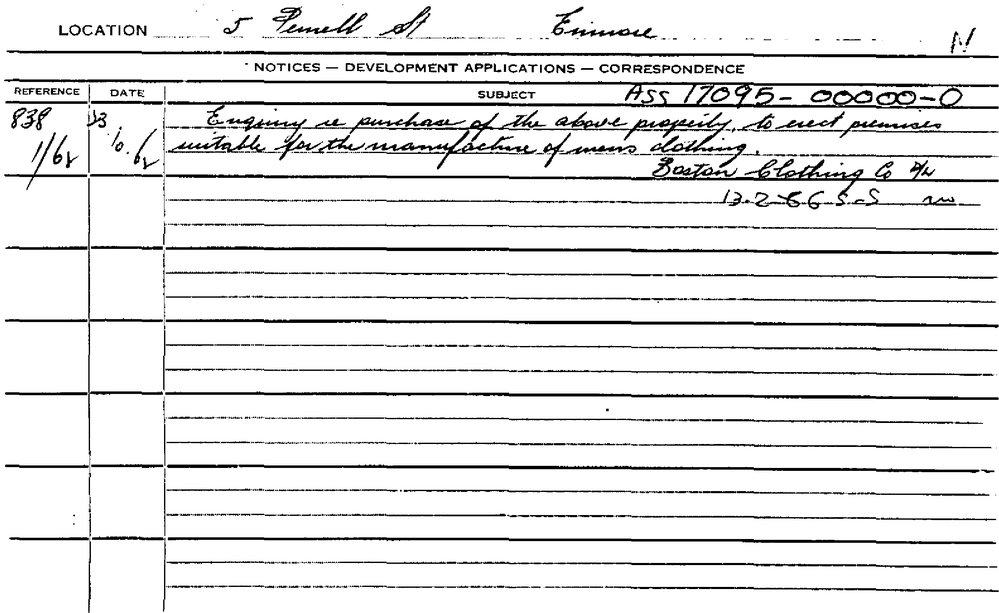 LOCATION 5 Pernell St Enmore N
NOTICES — DEVELOPMENT APPLICATIONS — CORRESPONDENCE
REFERENCE DATE SUBJECT ASS 17095-00000-0
838 23 Enquiry re purchase of the above property, to erect premises
1/62 10.62 suitable for the manufacture of mens clothing.
Boston Clothing Co P/L
13-2-86 S-S